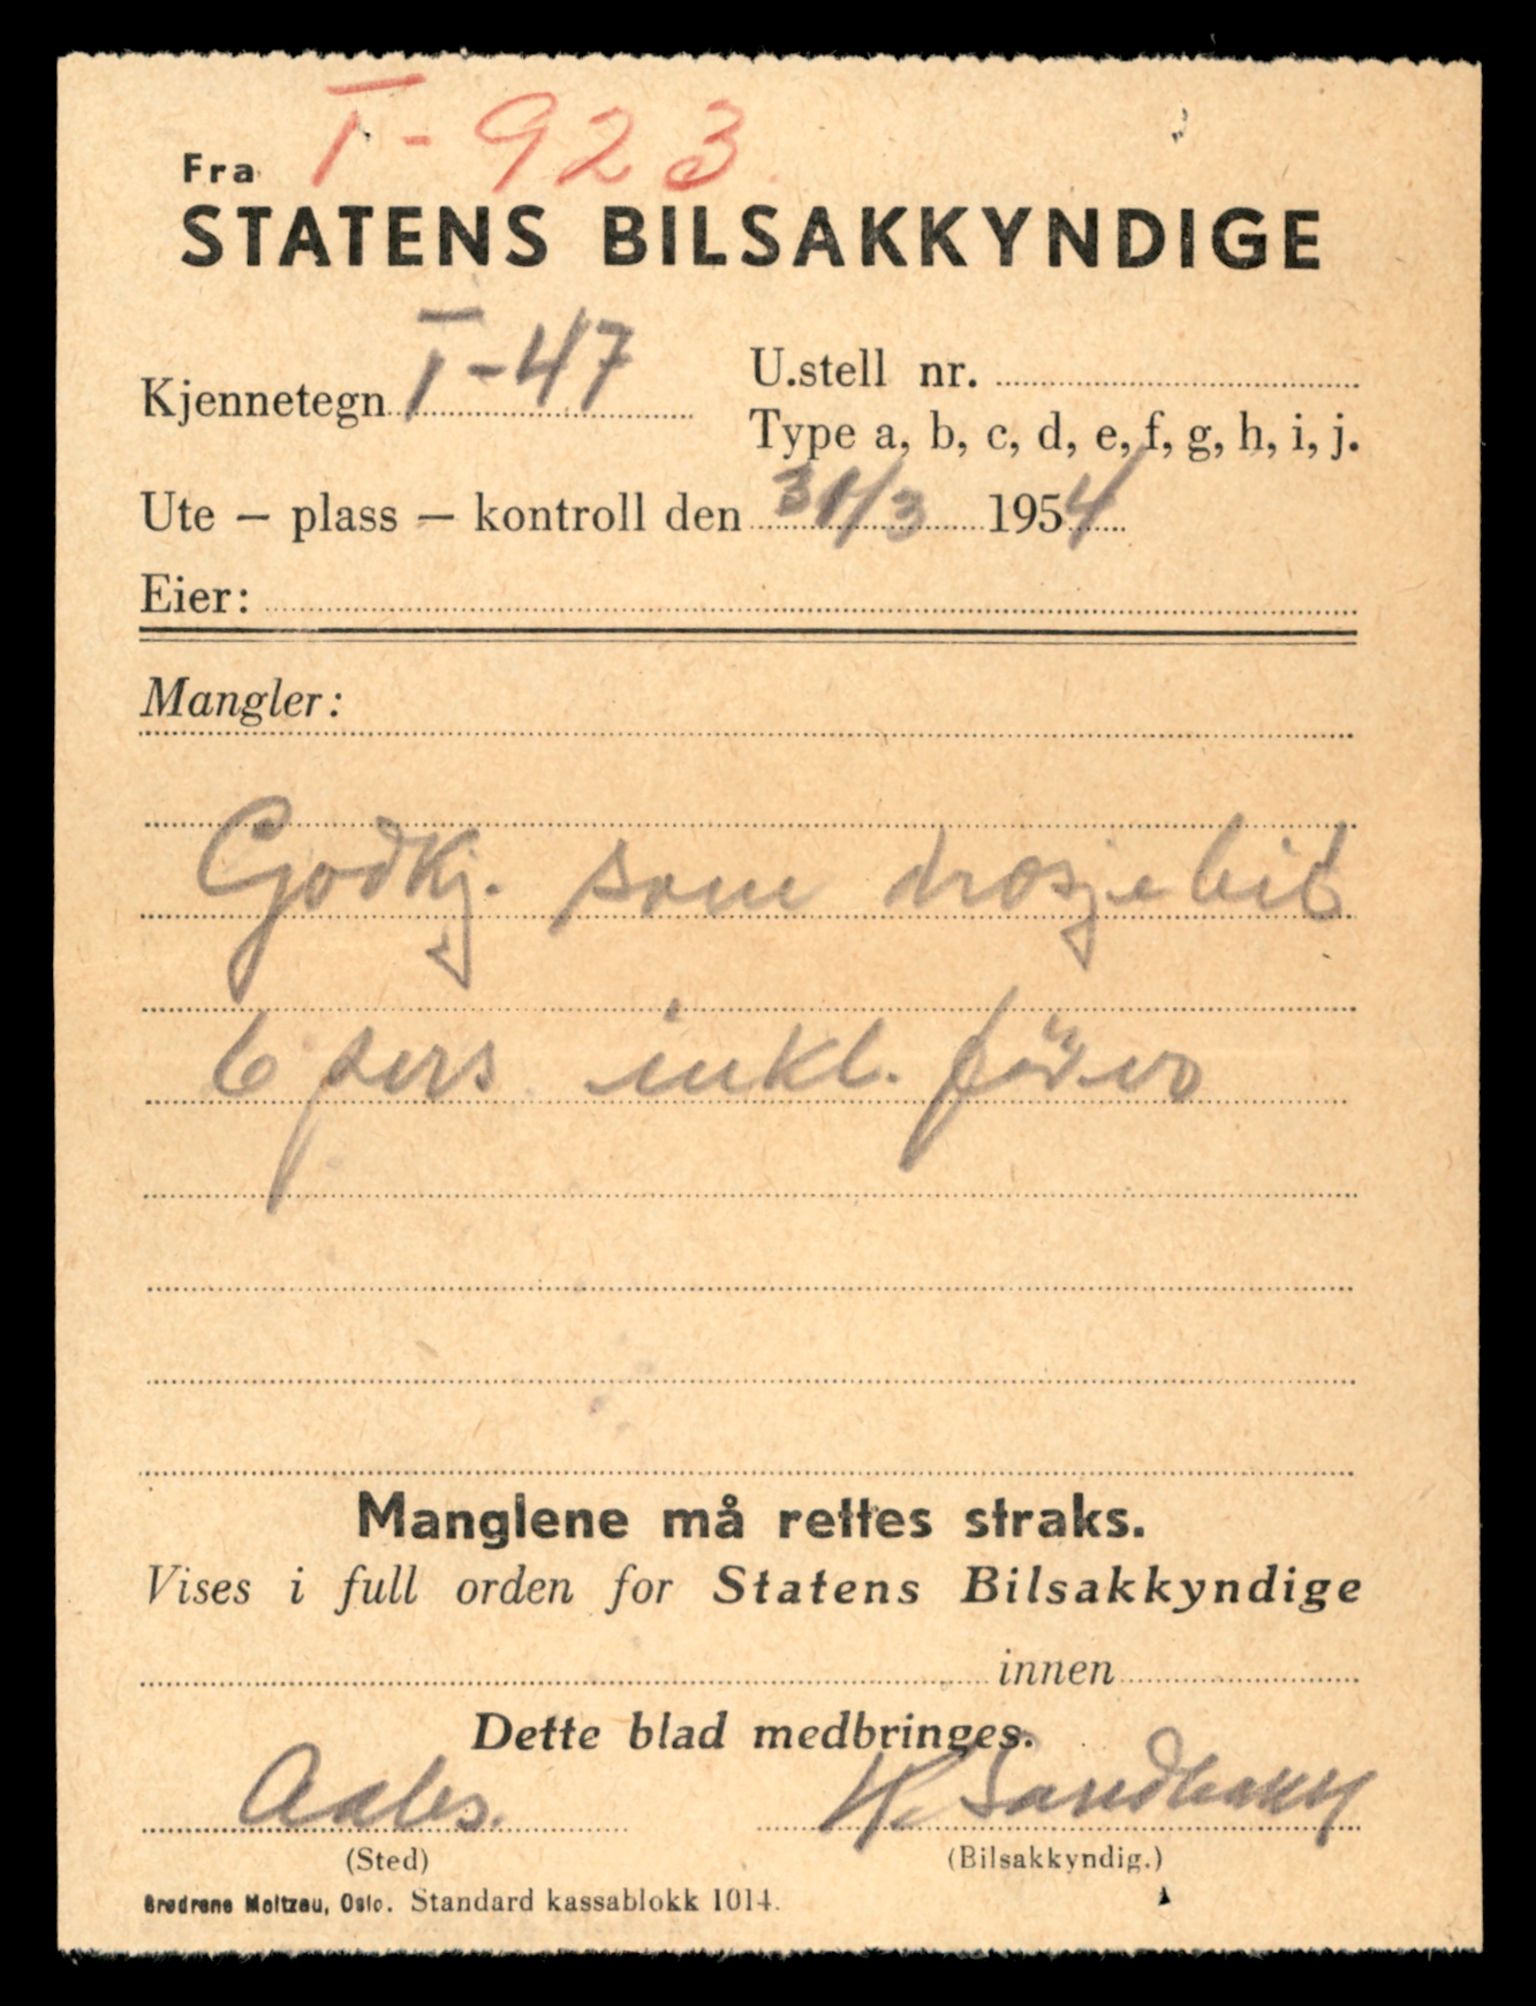 T-923
Fra
STATENS BILSAKKYNDIGE
Kjennetegn T-47
U.stell nr.
Type a, b, c, d, e, f, g, h, i, j.
Ute – plass – kontroll den 31/3 1954
Eier:
Mangler:
Godkj. som drosjebil
6 pers inkl. fører
Manglene må rettes straks.
Vises i full orden for Statens Bilsakkyndige
innen
Dette blad medbringes.
Aales. H. Sandbakk
(Sted) (Bilsakkyndig.)
Brødrene Moltzau, Oslo. Standard kassablokk 1014.